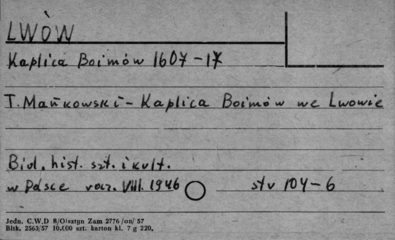 LWÓW
Kaplica Boimów 1607-17
T. Mańkowski - Kaplica Boimów we Lwowie
Biul. hist. szt. i kult.
w Polsce rocz. VIII. 1946 str 104-6
Jedn. C.W.D 8/Olsztyn Zam 2776/on/57
Blik. 2563/57 10.000 szt. karton kl. 7 g 220,